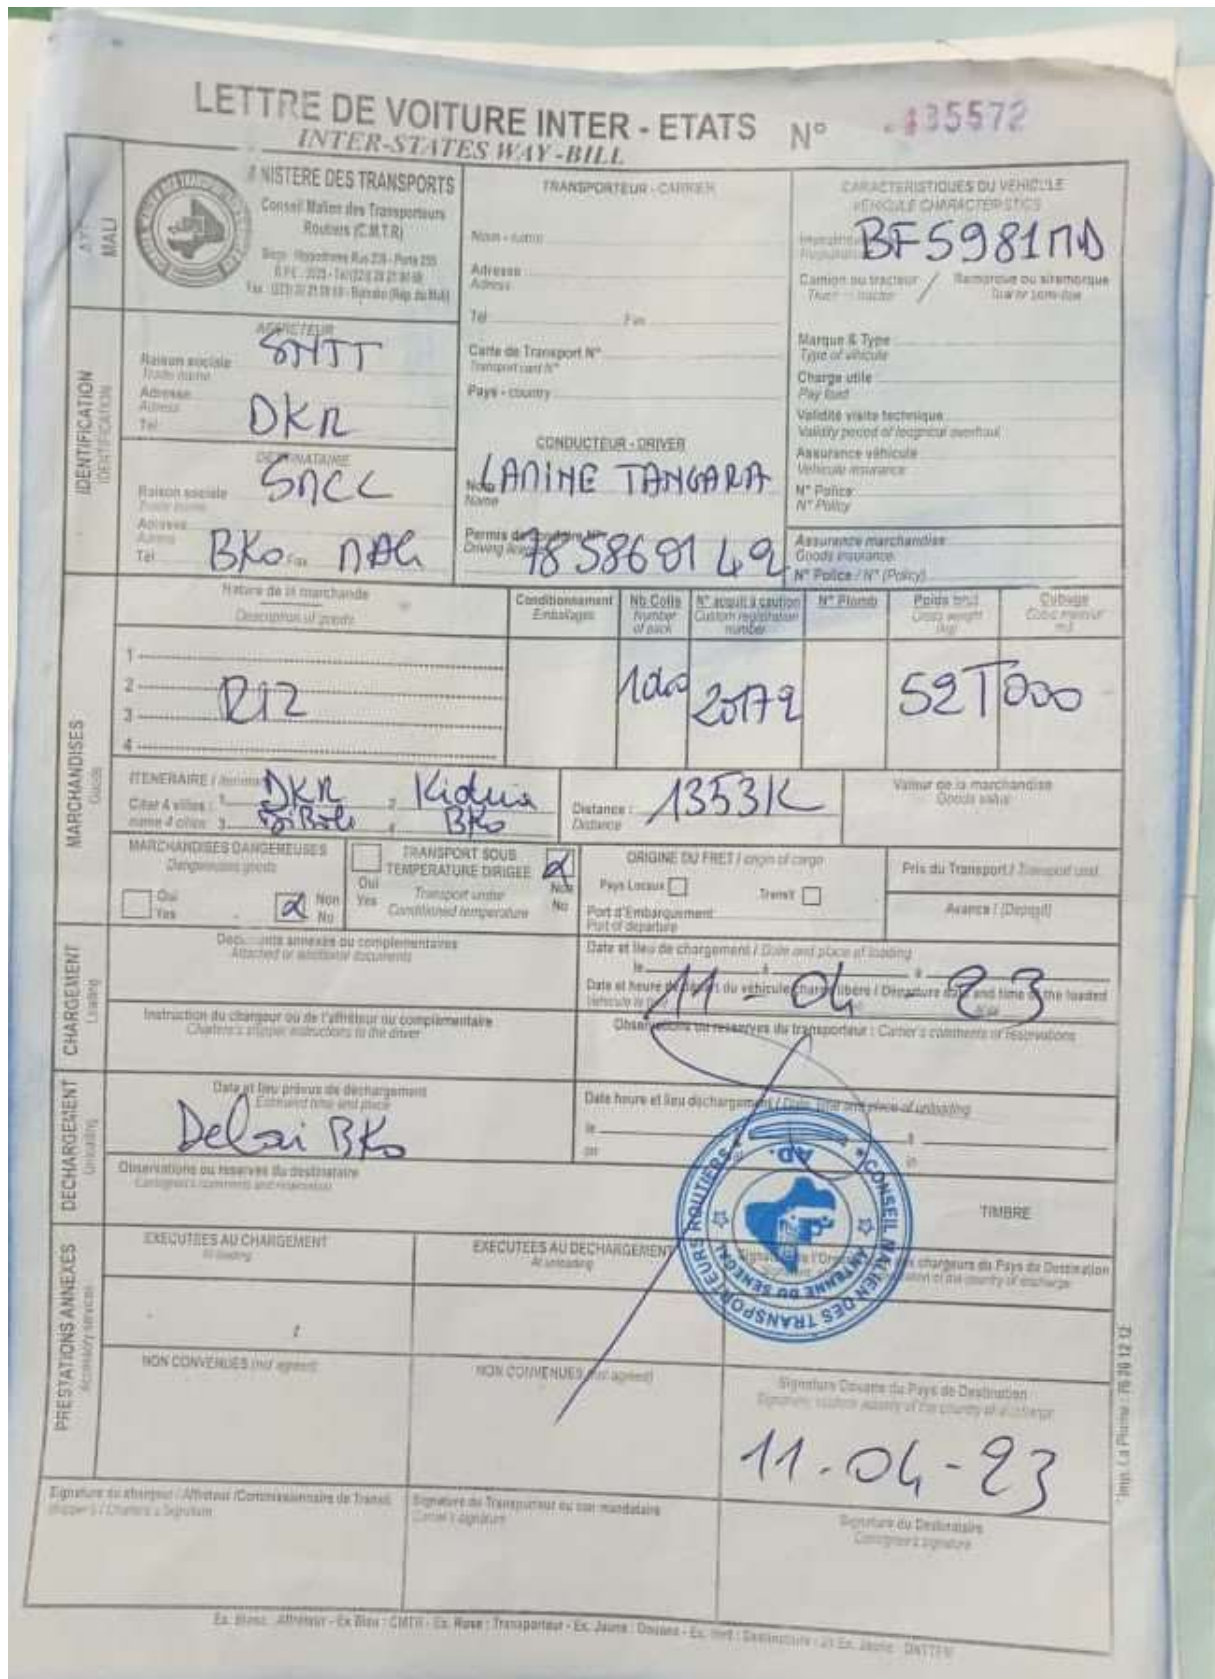 LETTRE DE VOITURE INTER - ETATS N° 435572
INTER-STATES WAY-BILL
MALI
MINISTERE DES TRANSPORTS
Conseil Malien des Transporteurs
Routiers (C.M.T.R)
TRANSPORTEUR - CARRIER
Nom - name
Adresse
Adress
Tél Fax
Carte de Transport N°
Transport card N°
Pays - country
CARACTERISTIQUES DU VEHICULE
VEHICULE CHARACTERISTICS
BF5981MD
Camion ou tracteur / Remorque ou
Marque & Type
Type of vehicule
Charge utile
Pay load
Validité visite technique
Assurance véhicule
Vehicule insurance
N° Police
N° Policy
Assurance marchandise
Goods insurance
N° Police / N° (Policy)
IDENTIFICATION
IDENTIFICATION
AFFRETEUR
Raison sociale SNTT
Trade name
Adresse DKR
Adress
Tél
DESTINATAIRE
Raison sociale
Adresse
Adress
Tél BKo Fax MAG
CONDUCTEUR - DRIVER
Nom LAMINE TANGARA
Name
Permis de conduire N°
Driving
MARCHANDISES
Goods
Nature de la marchande
Description of goods
Conditionnement
Emballages
Nb Colis
Number
of pack
N° acquit à caution
Custom registration
number
N° Plomb
Poids brut
Gross weight
(kg)
Cubage
1
2 RIZ
3
4
1000
20172
52T000
ITENERAIRE
Citer 4 villes : 1 DKR 2 Kidira
name 4 cities 3 4 BKo
Distance : 1353K
Distance
Valeur de la marchandise
Goods value
MARCHANDISES DANGEREUSES
Dangerous goods
Oui
Yes
Non
No
TRANSPORT SOUS
TEMPERATURE DIRIGEE
Transport under
Conditioned temperature
Oui
Yes
Non
No
ORIGINE DU FRET / origin of cargo
Pays Locaux Transit
Port d'Embarquement
Port of departure
Prix du Transport / Transport cost
Avance / (Deposit)
CHARGEMENT
Loading
Documents annexés ou complementaires
Attached or additional documents
Date et lieu de chargement / Date and place of loading
le à
Date et heure de départ du véhicule chargé libéré / Departure date and time of the loaded
11-04-23
Instruction du chargeur ou de l'affréteur ou complémentaire
Observations ou reserves du transporteur : Carrier's comments or reservations
DECHARGEMENT
Unloading
Date et lieu prévus de déchargement
Estimated time and place
Delai BKo
Date heure et lieu déchargement / Date, time and place of unloading
le à
on in
Observations ou reserves du destinataire
TIMBRE
CONSEIL MALIEN DES TRANSPORTEURS ROUTIERS
ANTENNE DU SENEGAL
PRESTATIONS ANNEXES
Accessory services
EXECUTEES AU CHARGEMENT
At loading
EXECUTEES AU DECHARGEMENT
At unloading
chargeurs du Pays de Destination
of the country of discharge
NON CONVENUES (not agreed)
NON CONVENUES (not agreed)
Signature Douane du Pays de Destination
11-04-23
Signature du chargeur / Affréteur / Commissionnaire de Transit
Signature du Transporteur ou son mandataire
Carrier's signature
Signature du Destinataire
Consignee's signature
Imp. La Plume : 76 20 12 12
Ex. Blanc : Affréteur - Ex Bleu : CMTR - Ex. Rose : Transporteur - Ex. Jaune : Douane - Ex. Vert : Destinataire